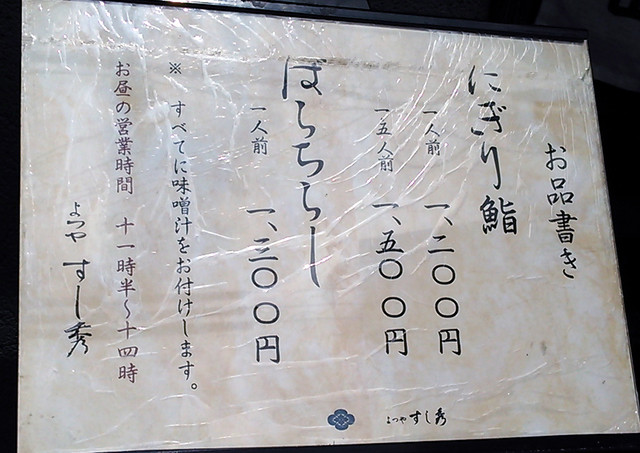 お品書き
にぎり鮨
一人前 一、二〇〇円
一五人前 一、五〇〇円
ばらちらし
一人前 一、三〇〇円
※ すべてに味噌汁をお付けします。
お昼の営業時間 十一時半〜十四時
よつや すし秀
よつや すし秀